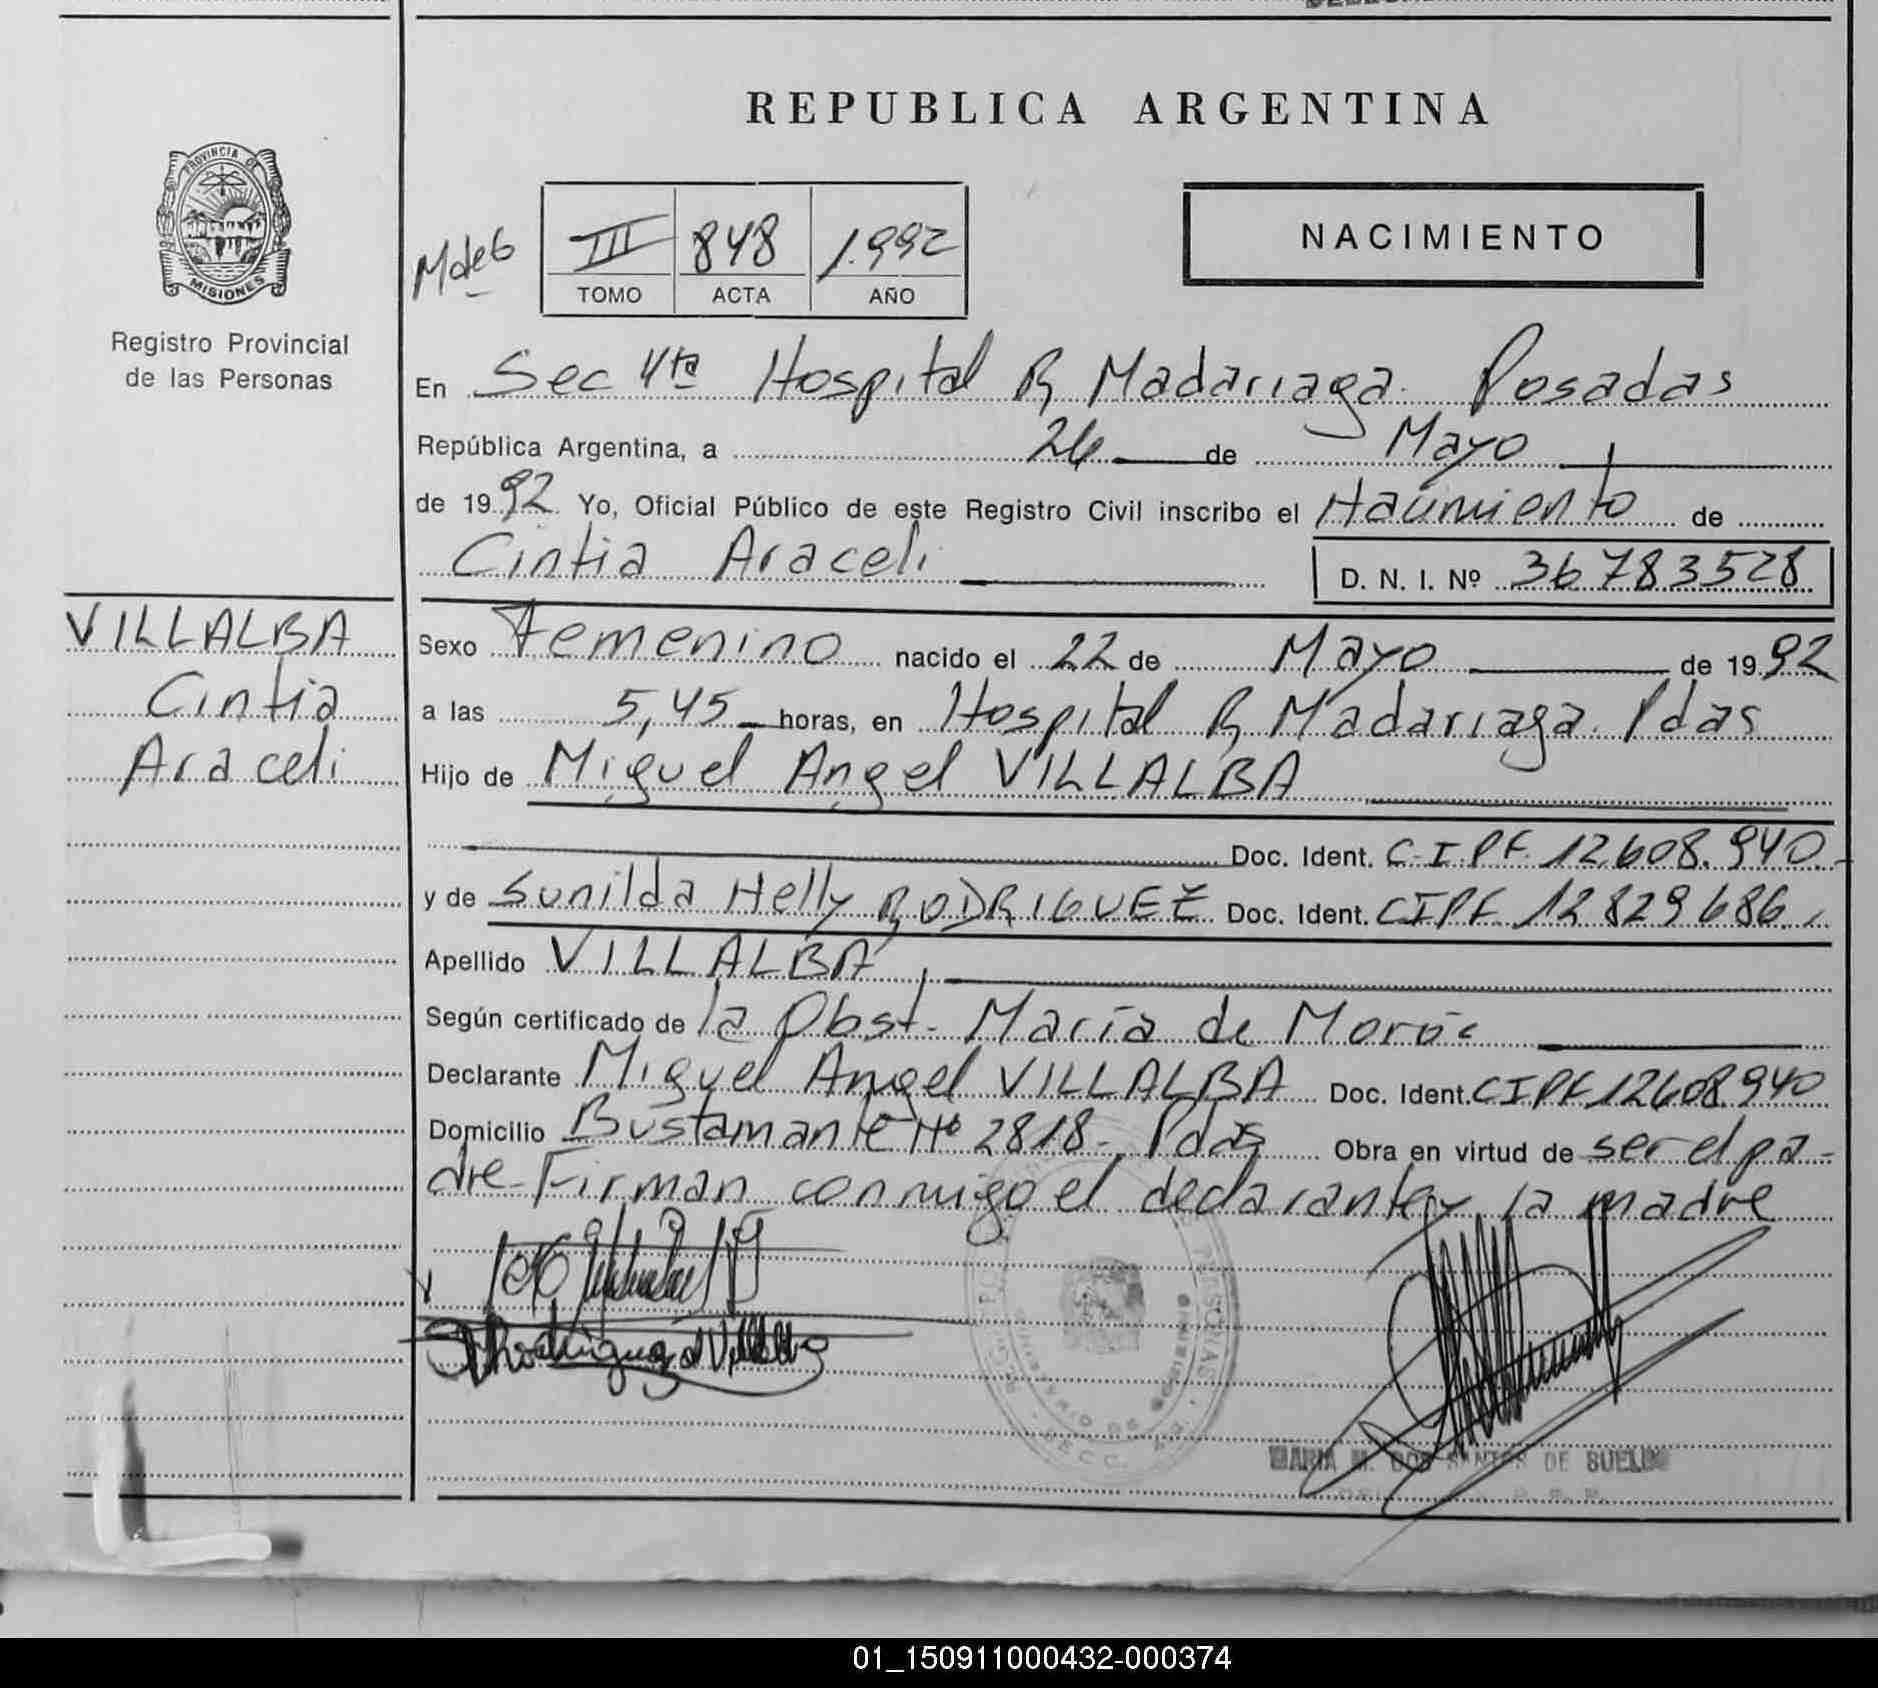 REPUBLICA ARGENTINA
PROVINCIA DE
MISIONES
Registro Provincial
de las Personas
III 848 1.992
TOMO ACTA AÑO
NACIMIENTO
En Sec 4ta Hospital R Madariaga. Posadas
República Argentina, a 26 de Mayo
de 1992 Yo, Oficial Público de este Registro Civil inscribo el Nacimiento de
Cintia Araceli
D. N. I. Nº 36 783528
VILLALBA
Cintia
Araceli
Sexo Femenino nacido el 22 de Mayo de 1992
a las 5,45 horas, en Hospital R Madariaga. Pdas
Hijo de Miguel Angel VILLALBA
Doc. Ident. C.I.PF. 12.608.940.
y de Sunilda Nelly RODRIGUEZ Doc. Ident. CIPF 12 829 686
Apellido VILLALBA
Según certificado de la Obst. Maria de
Declarante Miguel Angel VILLALBA Doc. Ident. CIPF 12608.940
Domicilio Bustamante Nº 2818. Pdas Obra en virtud de ser el pa-
dre-Firman conmigo el declarante y la madre
MARIA M. DOS SANTOS DE
01_150911000432-000374